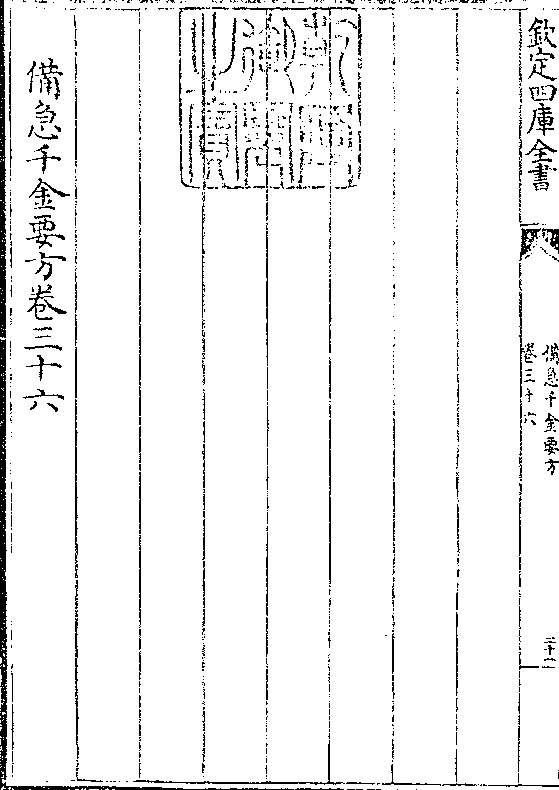 欽定四庫全書
備急千金要方
卷三十六
乾隆御覽之寶
備急千金要方卷三十六